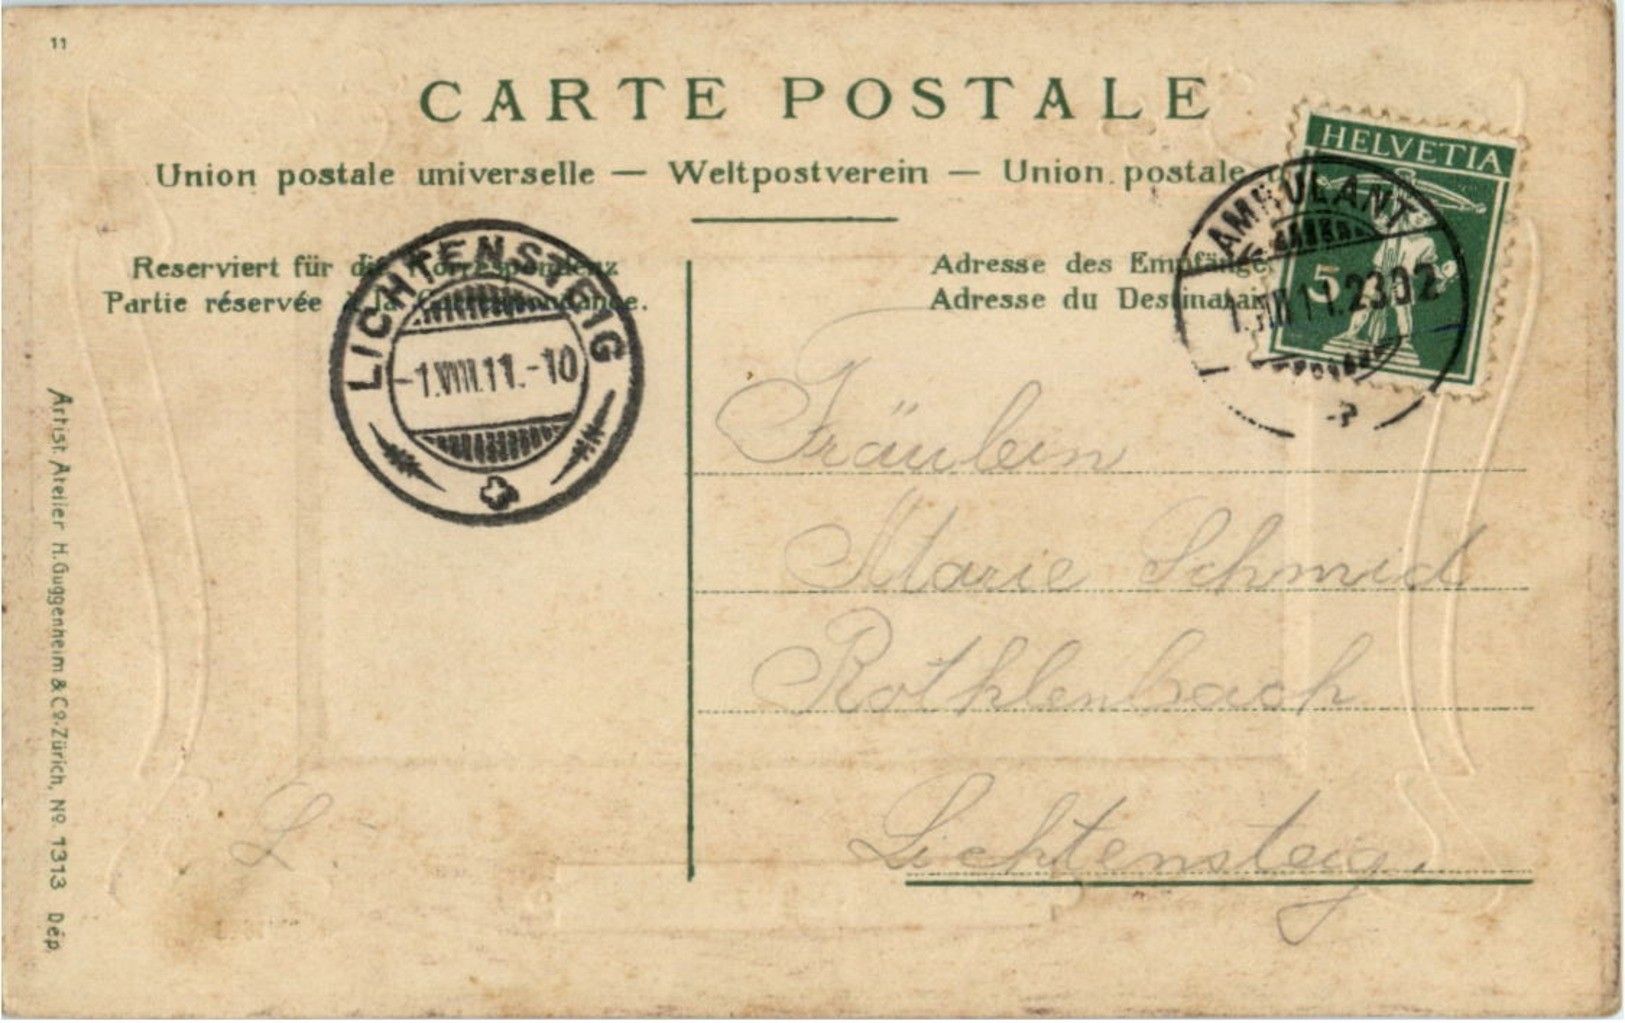 11
CARTE POSTALE
Union postale universelle — Weltpostverein — Union postale
HELVETIA
5
AMBULANT
1.VIII 11.2302
Reserviert für die Korrespondenz
Partie réservée à la Correspondance.
Adresse des Empfänge
Adresse du Destinatai
LICHTENSTEIG
-1.VIII.11.-10
Fräulein
Marie Schmid
Rothlenbach
Lichtensteig.
L.
Artist. Atelier H. Guggenheim & Co. Zürich, No. 1313 Dép.